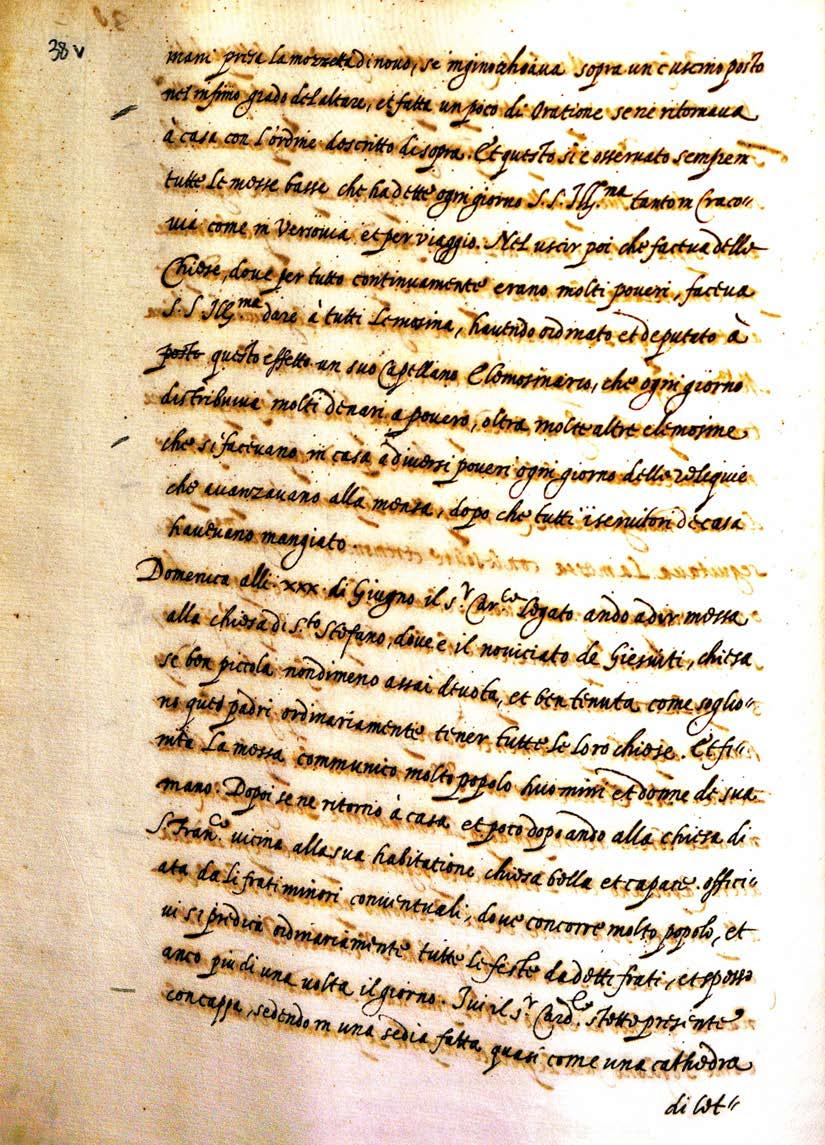 38v
mani presa la mozzetta di novo, se inginochiava sopra un cuscino posto
nel infimo grado del altare, et fatta un poco di Oratione se ne ritornava
à casa con l'ordine descritto di sopra. Et questo si è osservato sempre in
tutte le messe basse che ha dette ogni giorno S. S. Ill.ma tanto in Craco"
via come in Versovia et per viaggio. Nel uscir poi che faceva delle
Chiese, dove per tutto continuamente erano molti poveri, faceva
S. S. Ill.ma dare à tutti lemosina, havendo ordinato et deputato à
posto questo effetto un suo Capellano Elemosinario, che ogni giorno
distribuiva molti denari a povero, oltra molte altre elemosine
che si facevano in casa à diversi poveri ogni giorno delle reliquie
che avanzavano alla mensa, dopo che tutti i servitori de casa
havevano mangiato
Domenica alli xxx di Giugno il s.r Car.le Legato andò a dir messa
alla chiesa di S.to Stefano, dove è il noviciato de Giesuiti, chiesa
se ben piccola nondimeno assai devota, et ben tenuta come soglio"
no questi padri ordinariamente tener tutte le loro chiese. Et fi"
nita La messa communicò molto popolo huomini et donne de sua
mano. Dopoi se ne ritornò à casa et poco dopo andò alla chiesa di
S. Fran.co vicina alla sua habitatione chiesa bella et capace offici"
ata da li frati minori conventuali, dove concorre molto popolo, et
vi si predica ordinariamente tutte le feste da detti frati, et spesso
anco piu di una volta il giorno. Ivi il s.r Card.le stette presente
con cappa, sedendo in una sedia fatta quasi come una cathedra
di let"